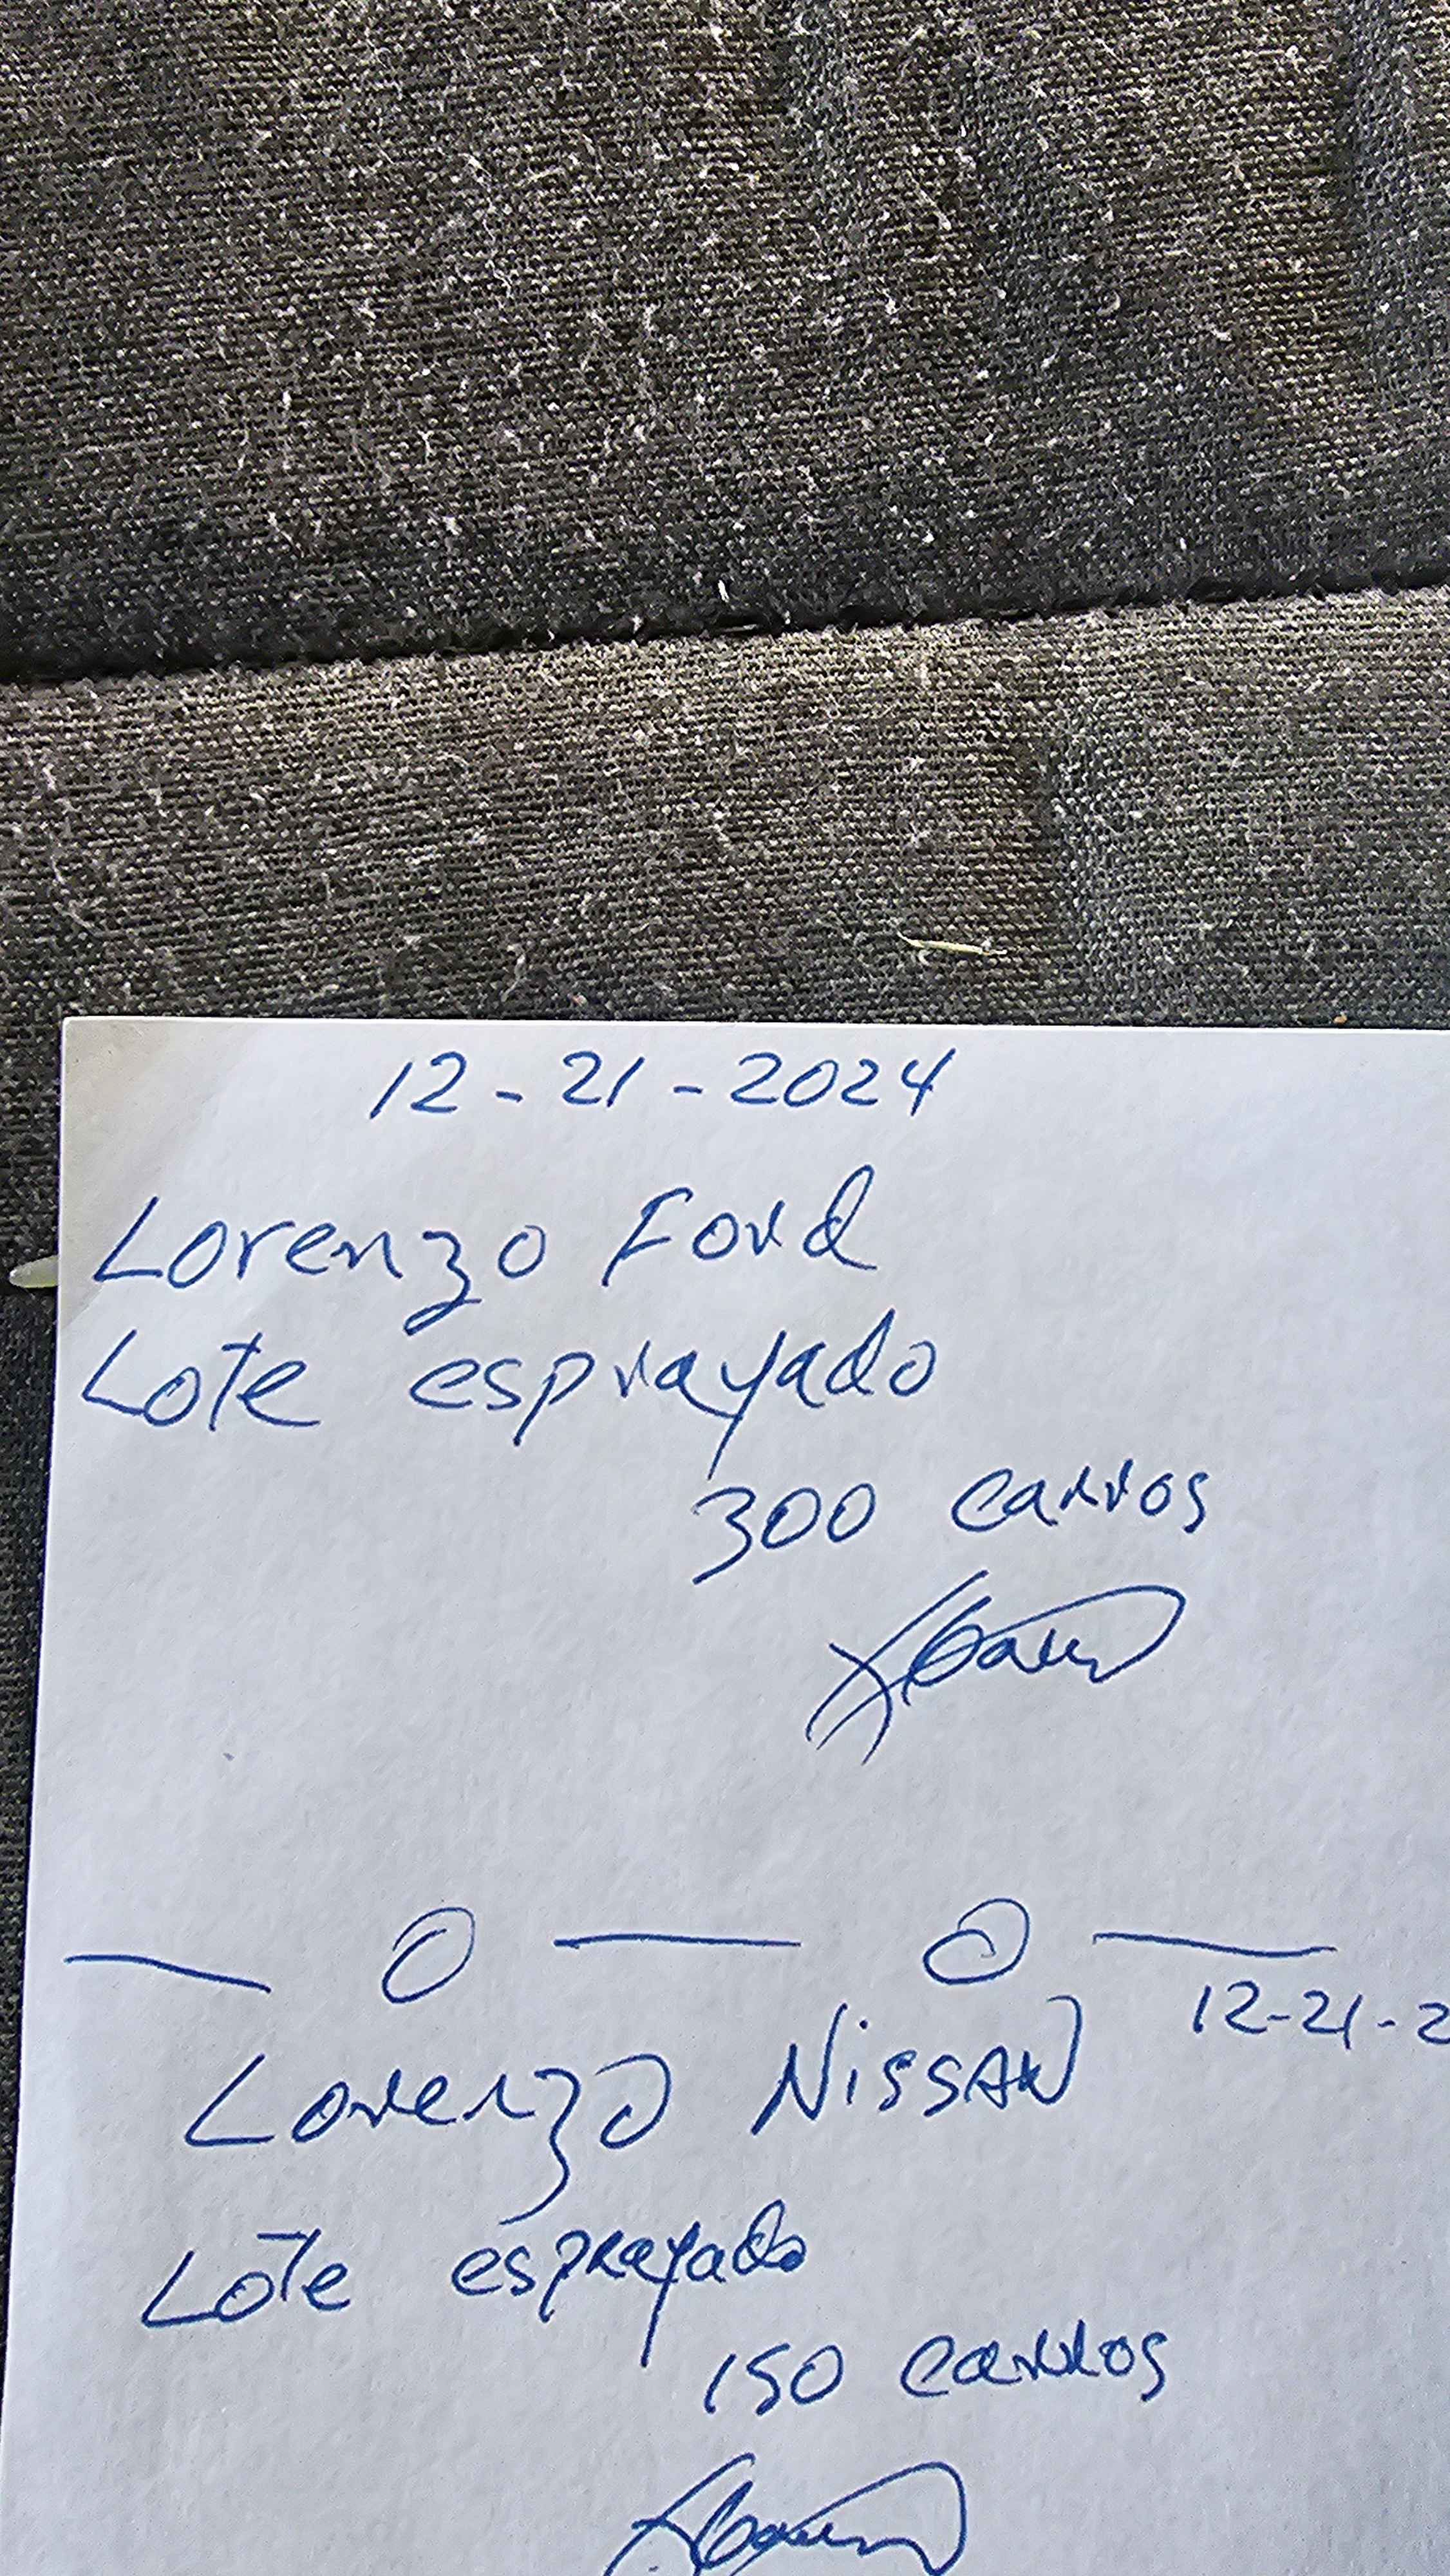 12-21-2024
Lorenzo Ford
Lote esprayado
300 carros
12-21-2
Lorenzo Nissan
Lote esprayado
150 carros